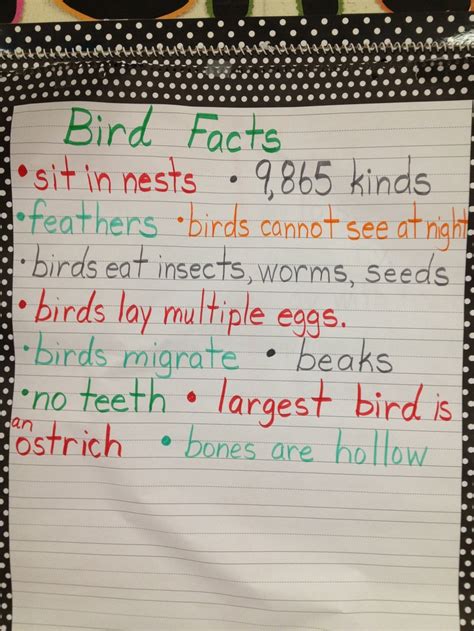 Bird Facts
• sit in nests • 9,865 kinds
• feathers • birds cannot see at night
• birds eat insects, worms, seeds
• birds lay multiple eggs.
• birds migrate • beaks
• no teeth • largest bird is
an ostrich • bones are hollow